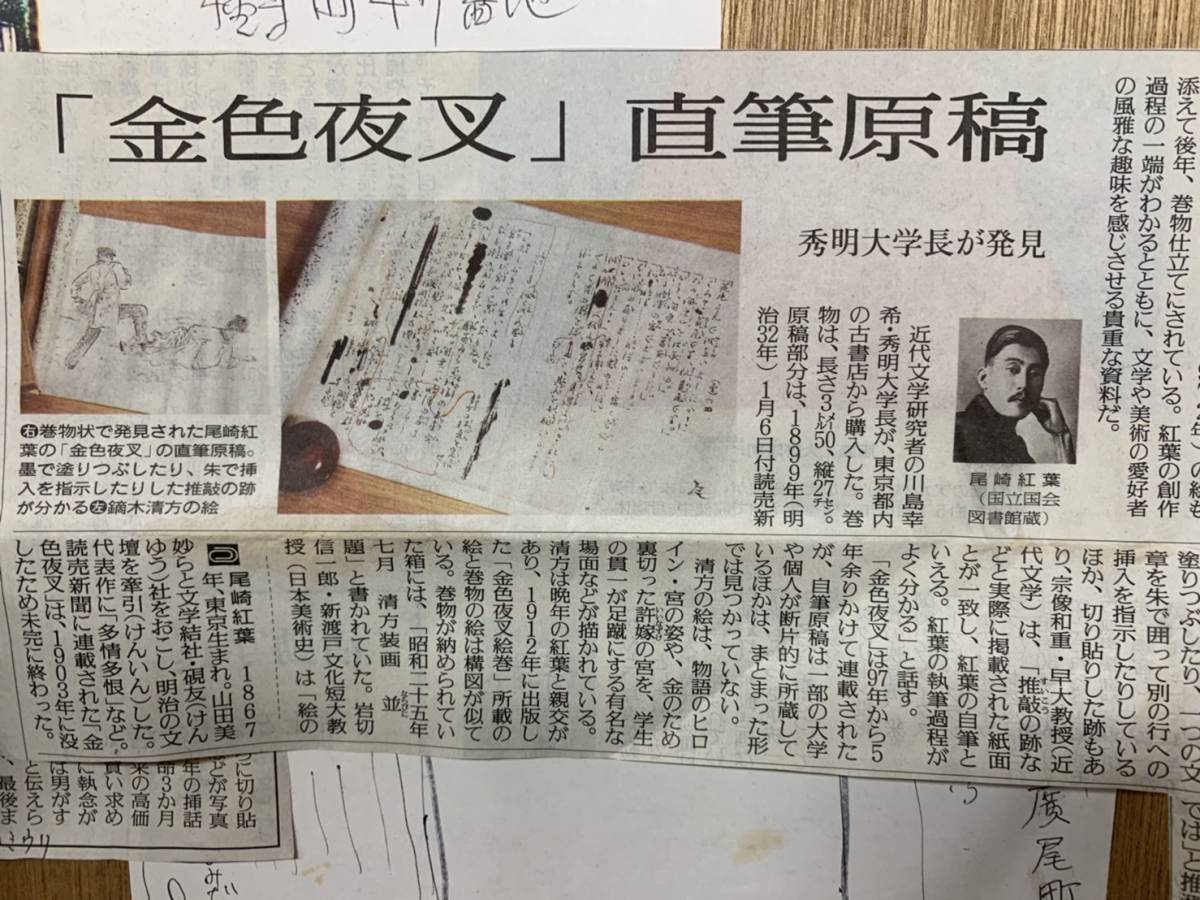 「金色夜叉」直筆原稿
秀明大学長が発見
近代文学研究者の川島幸
希・秀明大学長が、東京都内
の古書店から購入した。巻
物は、長さ3メートル50、縦27センチ。
原稿部分は、1899年(明
治32年)1月6日付読売新
尾崎紅葉
(国立国会
図書館蔵)
添えて後年、巻物仕立てにされている。紅葉の創作
過程の一端がわかるとともに、文学や美術の愛好者
の風雅な趣味を感じさせる貴重な資料だ。
㊨巻物状で発見された尾崎紅
葉の「金色夜叉」の直筆原稿。
墨で塗りつぶしたり、朱で挿
入を指示したりした推敲の跡
が分かる㊧鏑木清方の絵
塗りつぶしたり、一つの文
章を朱で囲って別の行への
挿入を指示したりしている
ほか、切り貼りした跡もあ
り、宗像和重・早大教授(近
代文学)は、「推敲の跡な
どと実際に掲載された紙面
とが一致し、紅葉の自筆と
いえる。紅葉の執筆過程が
よく分かる」と話す。
「金色夜叉」は97年から5
年余りかけて連載された
が、自筆原稿は一部の大学
や個人が断片的に所蔵して
いるほかは、まとまった形
では見つかっていない。
清方の絵は、物語のヒロ
イン・宮の姿や、金のため
裏切った許嫁の宮を、学生
の貫一が足蹴にする有名な
場面などが描かれている。
清方は晩年の紅葉と親交が
あり、1912年に出版し
た「金色夜叉絵巻」所載の
絵と巻物の絵は構図が似て
いる。巻物が納められてい
た箱には、「昭和二十五年
七月 清方装画 並
題」と書かれていた。岩切
信一郎・新渡戸文化短大教
授(日本美術史)は「絵の
尾崎紅葉 1867
年、東京生まれ。山田美
妙らと文学結社・硯友(けん
ゆう)社をおこし、明治の文
壇を牽引(けんいん)した。
代表作に「多情多恨」など。
読売新聞に連載された「金
色夜叉」は、1903年に没
したため未完に終わった。
に切り貼
どが写真
年の挿話
命3か月
来の高価
買い求め
に執念が
は男がす
と伝えら
、最後ま
廣尾町
では」と推